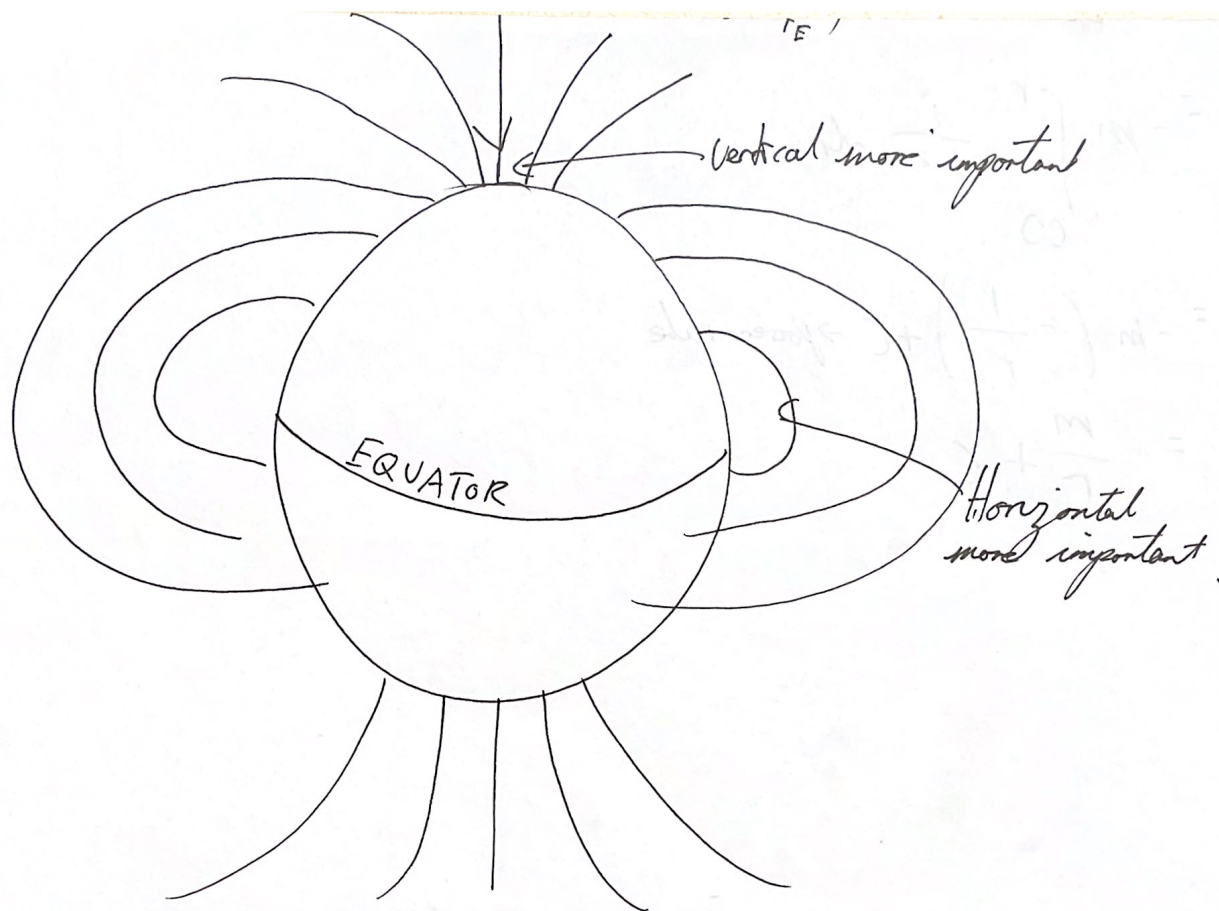 vertical more important
EQUATOR
Horizontal
more important